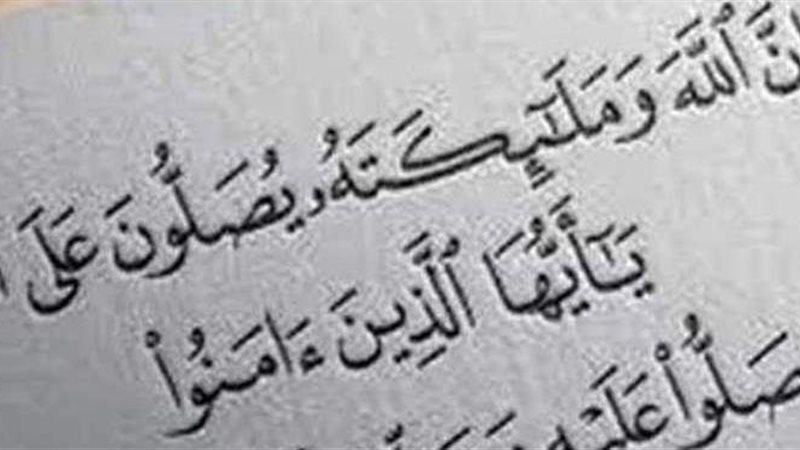 نَّ ٱللَّهَ وَمَلَٰٓئِكَتَهُۥ يُصَلُّونَ عَلَى
يَٰٓأَيُّهَا ٱلَّذِينَ ءَامَنُوا۟
صَلُّوا۟ عَلَيْهِ